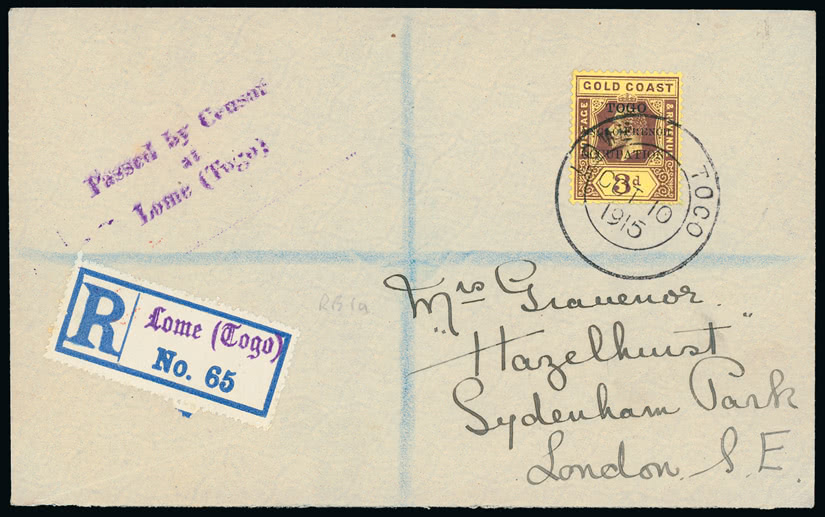 Passed by Censor
at
Lome (Togo)
GOLD COAST
POSTAGE
& REVENUE
TOGO
ANGLO-FRENCH
OCCUPATION
3d
TOGO
10
1915
R
Lome (Togo)
No. 65
RB1a
Mrs Gravenor
"Hazelhurst"
Sydenham Park
London. S.E.